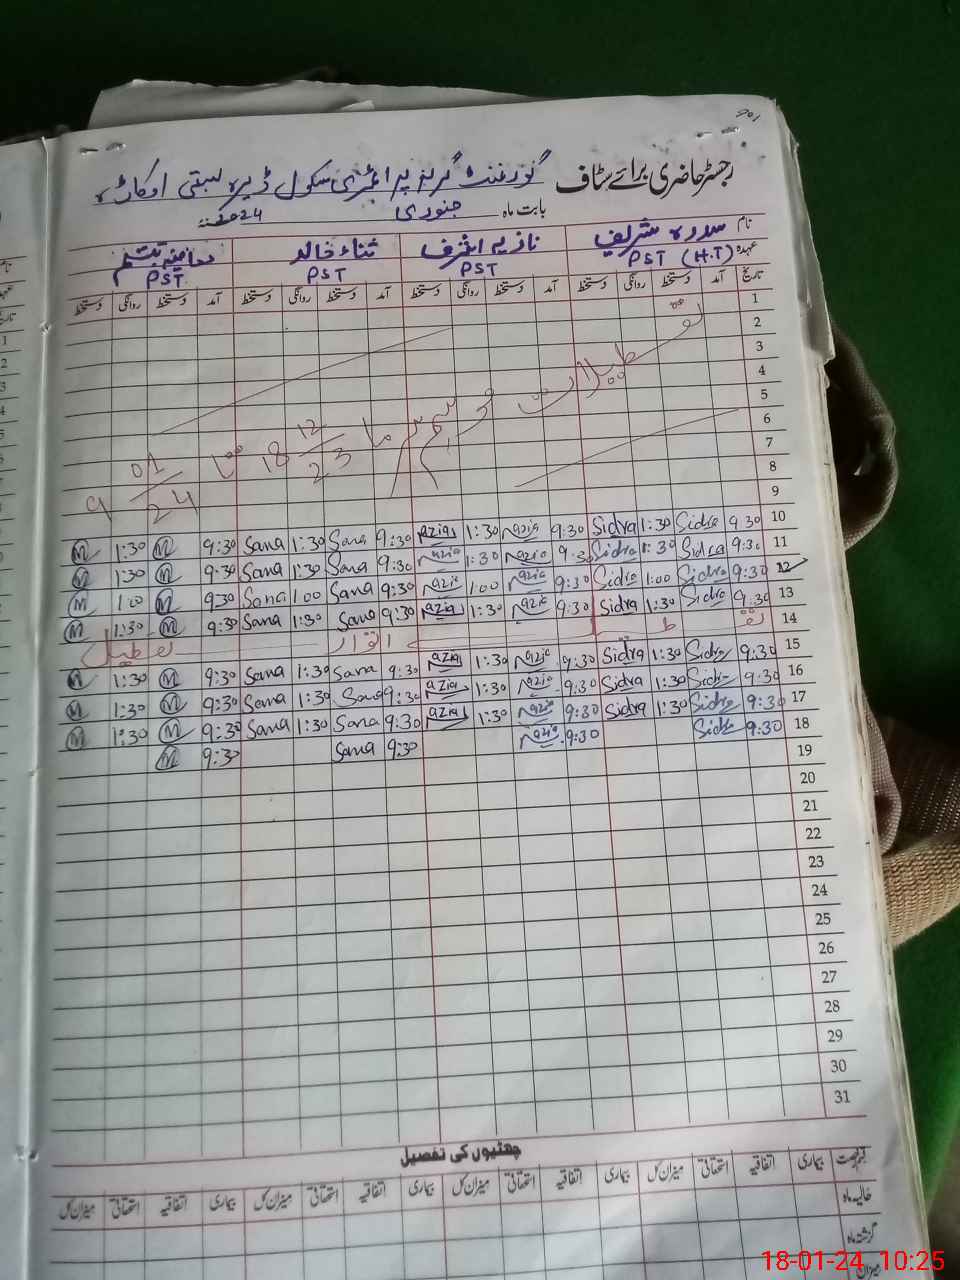 رجسٹر حاضری برائے سٹاف گورنمنٹ گرلز پرائمری سکول ڈیرہ بستی اوکاڑہ
بابت ماہ جنوری 2024
نام سدرہ شریف نازیہ اشرف ثناء خالد تبسم
عہدہ PST (H.T) PST PST PST
تاریخ آمد دستخط روانگی دستخط آمد دستخط روانگی دستخط آمد دستخط روانگی دستخط آمد دستخط روانگی دستخط
1
2
3
4
5
6
7
8
9
تعطیلات موسم سرما 18 12/23 تا 9 01/24
10 9:30 Sidra 1:30 Sidra 9:30 Nazia 1:30 Nazia 9:30 Sana 1:30 Sana 9:30 M 1:30 M
11 9:30 Sidra 1:30 Sidra 9:30 Nazia 1:30 Nazia 9:30 Sana 1:30 Sana 9:30 M 1:30 M
12 9:30 Sidra 1:00 Sidra 9:30 Nazia 1:00 Nazia 9:30 Sana 1:00 Sana 9:30 M 1:00 M
13 9:30 Sidra 1:30 Sidra 9:30 Nazia 1:30 Nazia 9:30 Sana 1:30 Sana 9:30 M 1:30 M
14 اتوار تعطیل
15 9:30 Sidra 1:30 Sidra 9:30 Nazia 1:30 Nazia 9:30 Sana 1:30 Sana 9:30 M 1:30 M
16 9:30 Sidra 1:30 Sidra 9:30 Nazia 1:30 Nazia 9:30 Sana 1:30 Sana 9:30 M 1:30 M
17 9:30 Sidra 1:30 Sidra 9:30 Nazia 1:30 Nazia 9:30 Sana 1:30 Sana 9:30 M 1:30 M
18 9:30 Sidra 9:30 Nazia 9:30 Sana 9:30 M
19
20
21
22
23
24
25
26
27
28
29
30
31
چھٹیوں کی تفصیل
قسم رخصت بیماری اتفاقیہ استحقاقی میزان کل بیماری اتفاقیہ استحقاقی میزان کل بیماری اتفاقیہ استحقاقی میزان کل بیماری اتفاقیہ استحقاقی میزان کل
حالیہ ماہ
گزشتہ ماہ
میزان
18-01-24 10:25